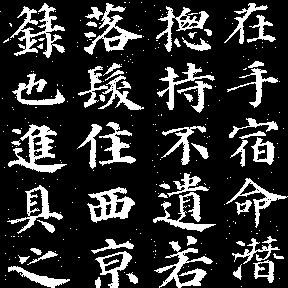 在手宿命潜
揔持不遺若
落髮住西京
籙也進具之